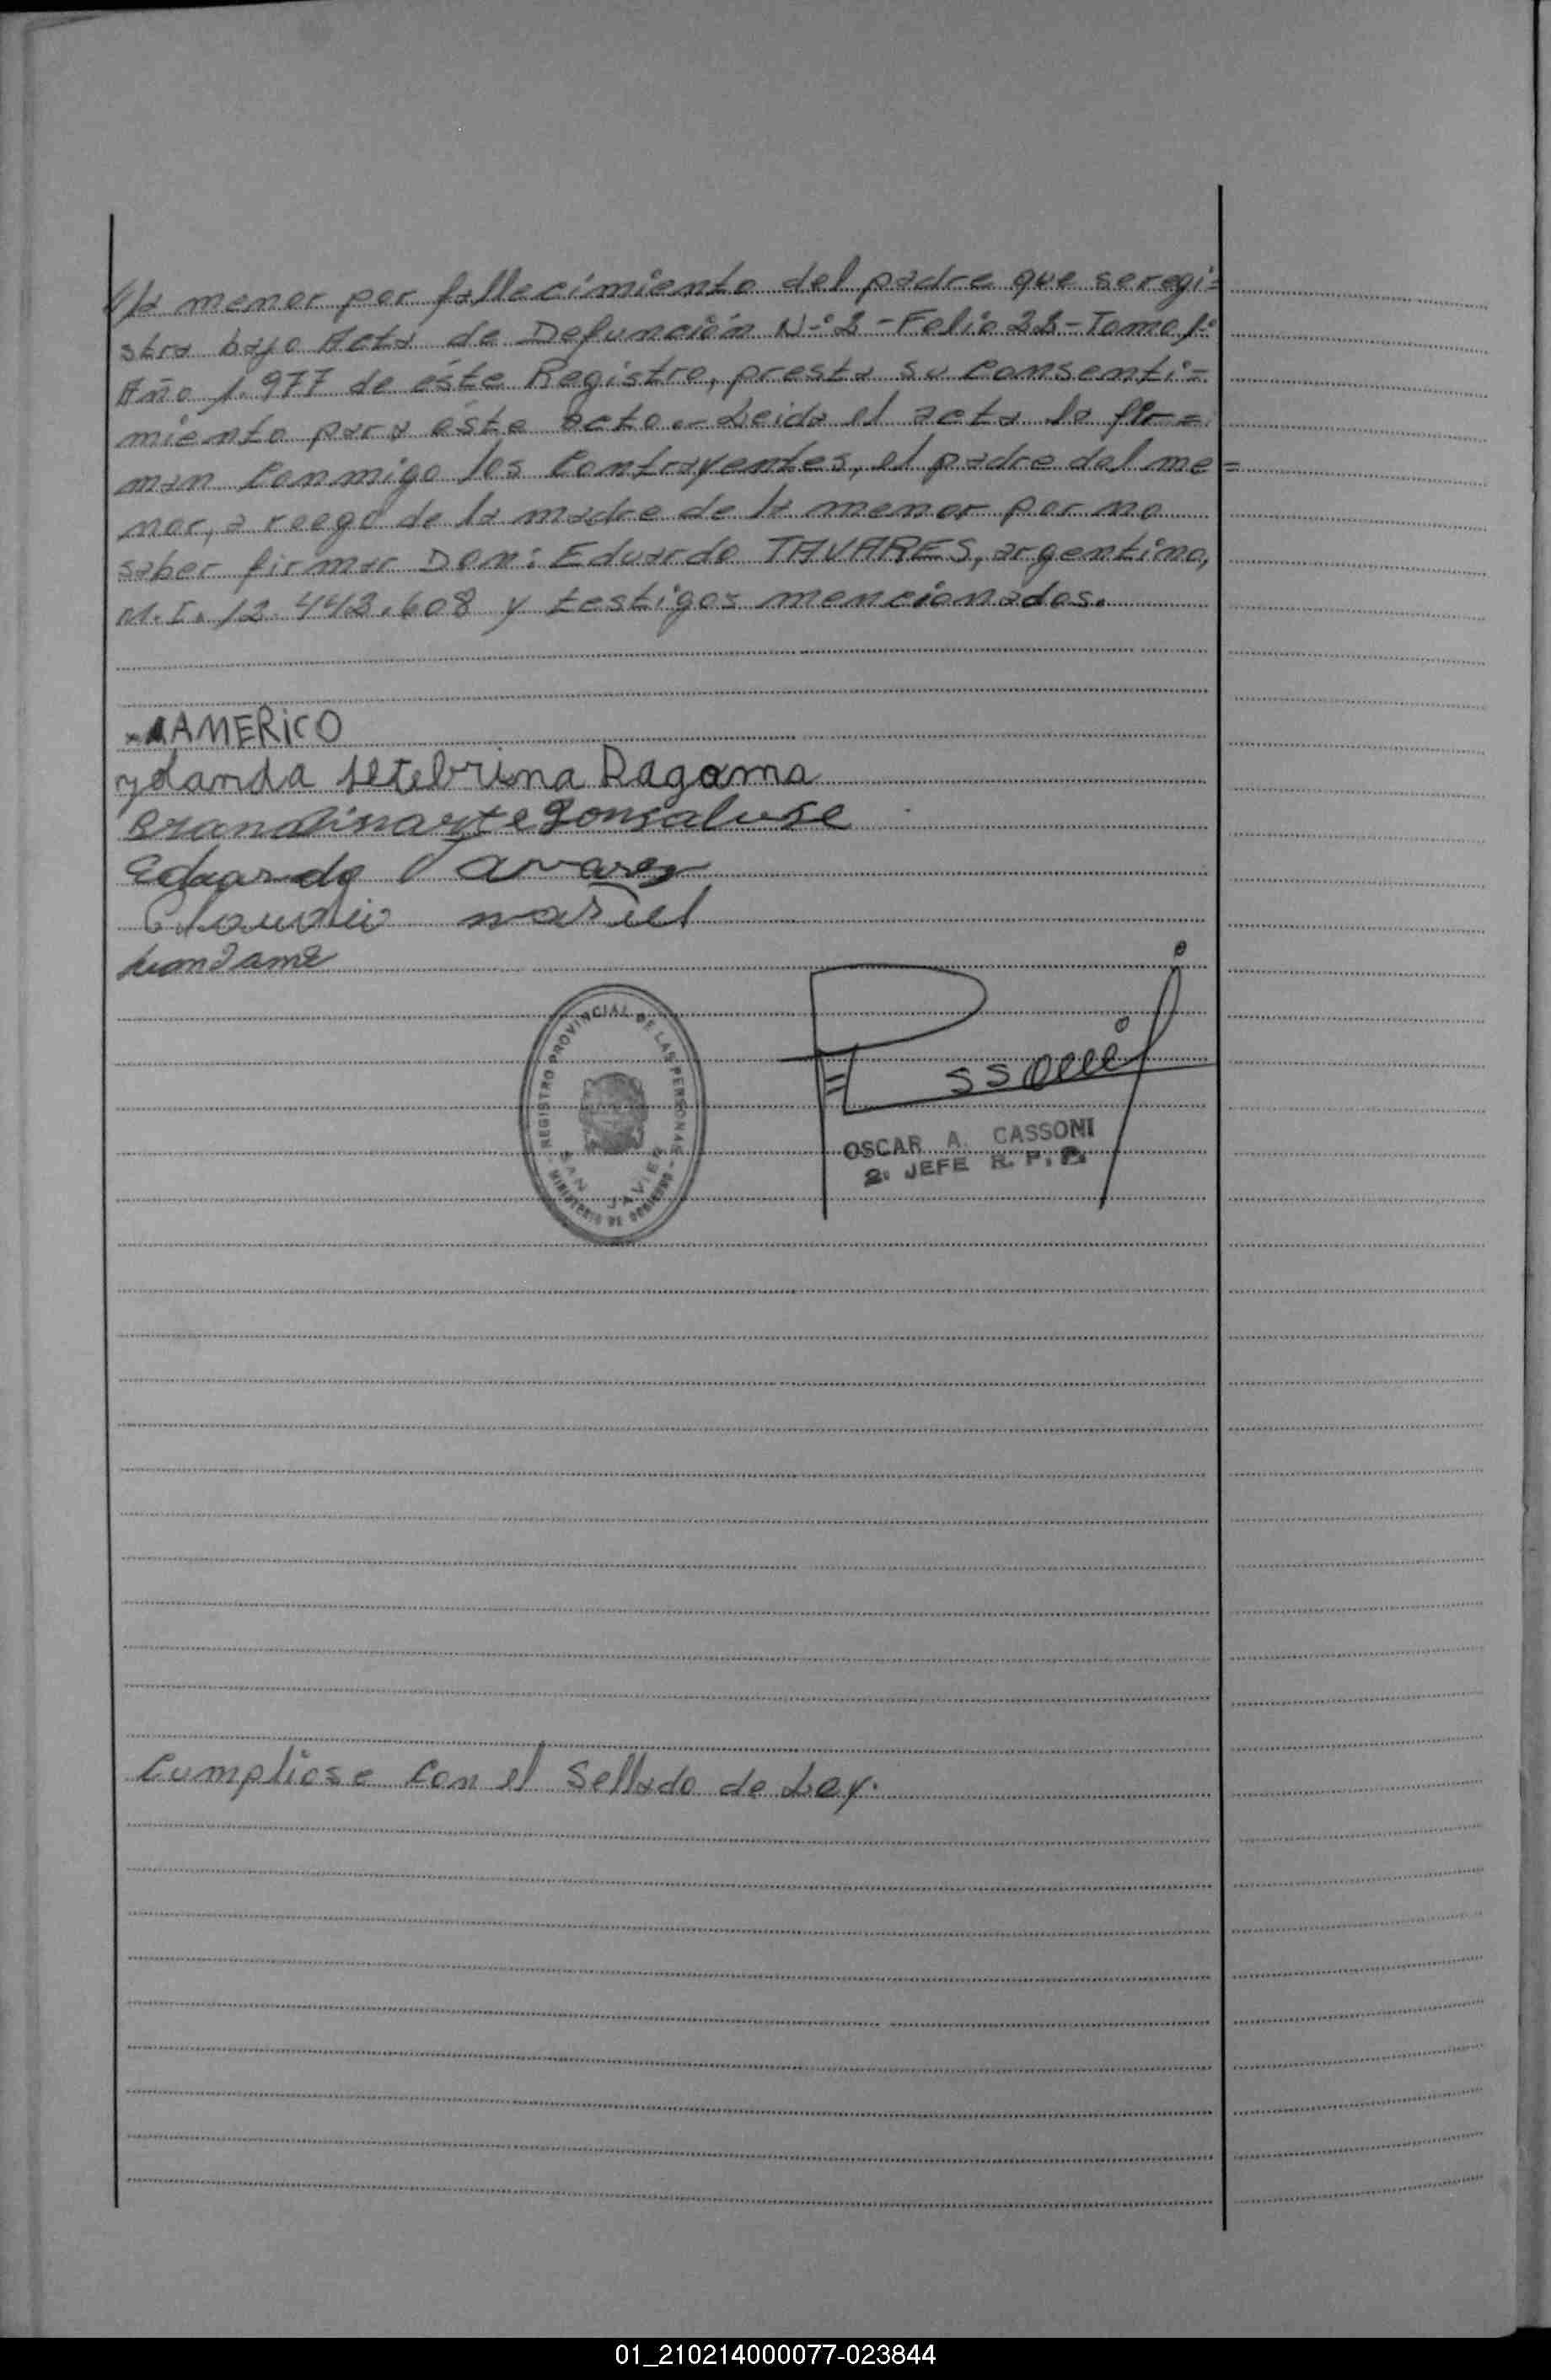 //la menor por fallecimiento del padre que se regi=
stra bajo Acta de Defunción N-º 2 - Folio 22 - Tomo 1º
Año 1.977 de éste Registro, presta su Consenti=
miento para éste acto.- Leida el acta la fir=
man Conmigo los Contrayentes, el padre del me=
nor, a roego de la madre de la menor por no
saber firmar Don: Eduardo TAVARES, argentino,
M.I. 12.442.608 y testigos mencionados.
AMERiCO
yolanda setebrina Dagama
Gonsalvse
Eduardo Tavares
Claudio
REGISTRO PROVINCIAL DE LAS PERSONAS
SAN JAVIER
MINISTERIO DE GOBIERNO
OSCAR A. CASSONI
2. JEFE R. P. P.
Cumpliose Con el Sellado de Ley.
01_210214000077-023844